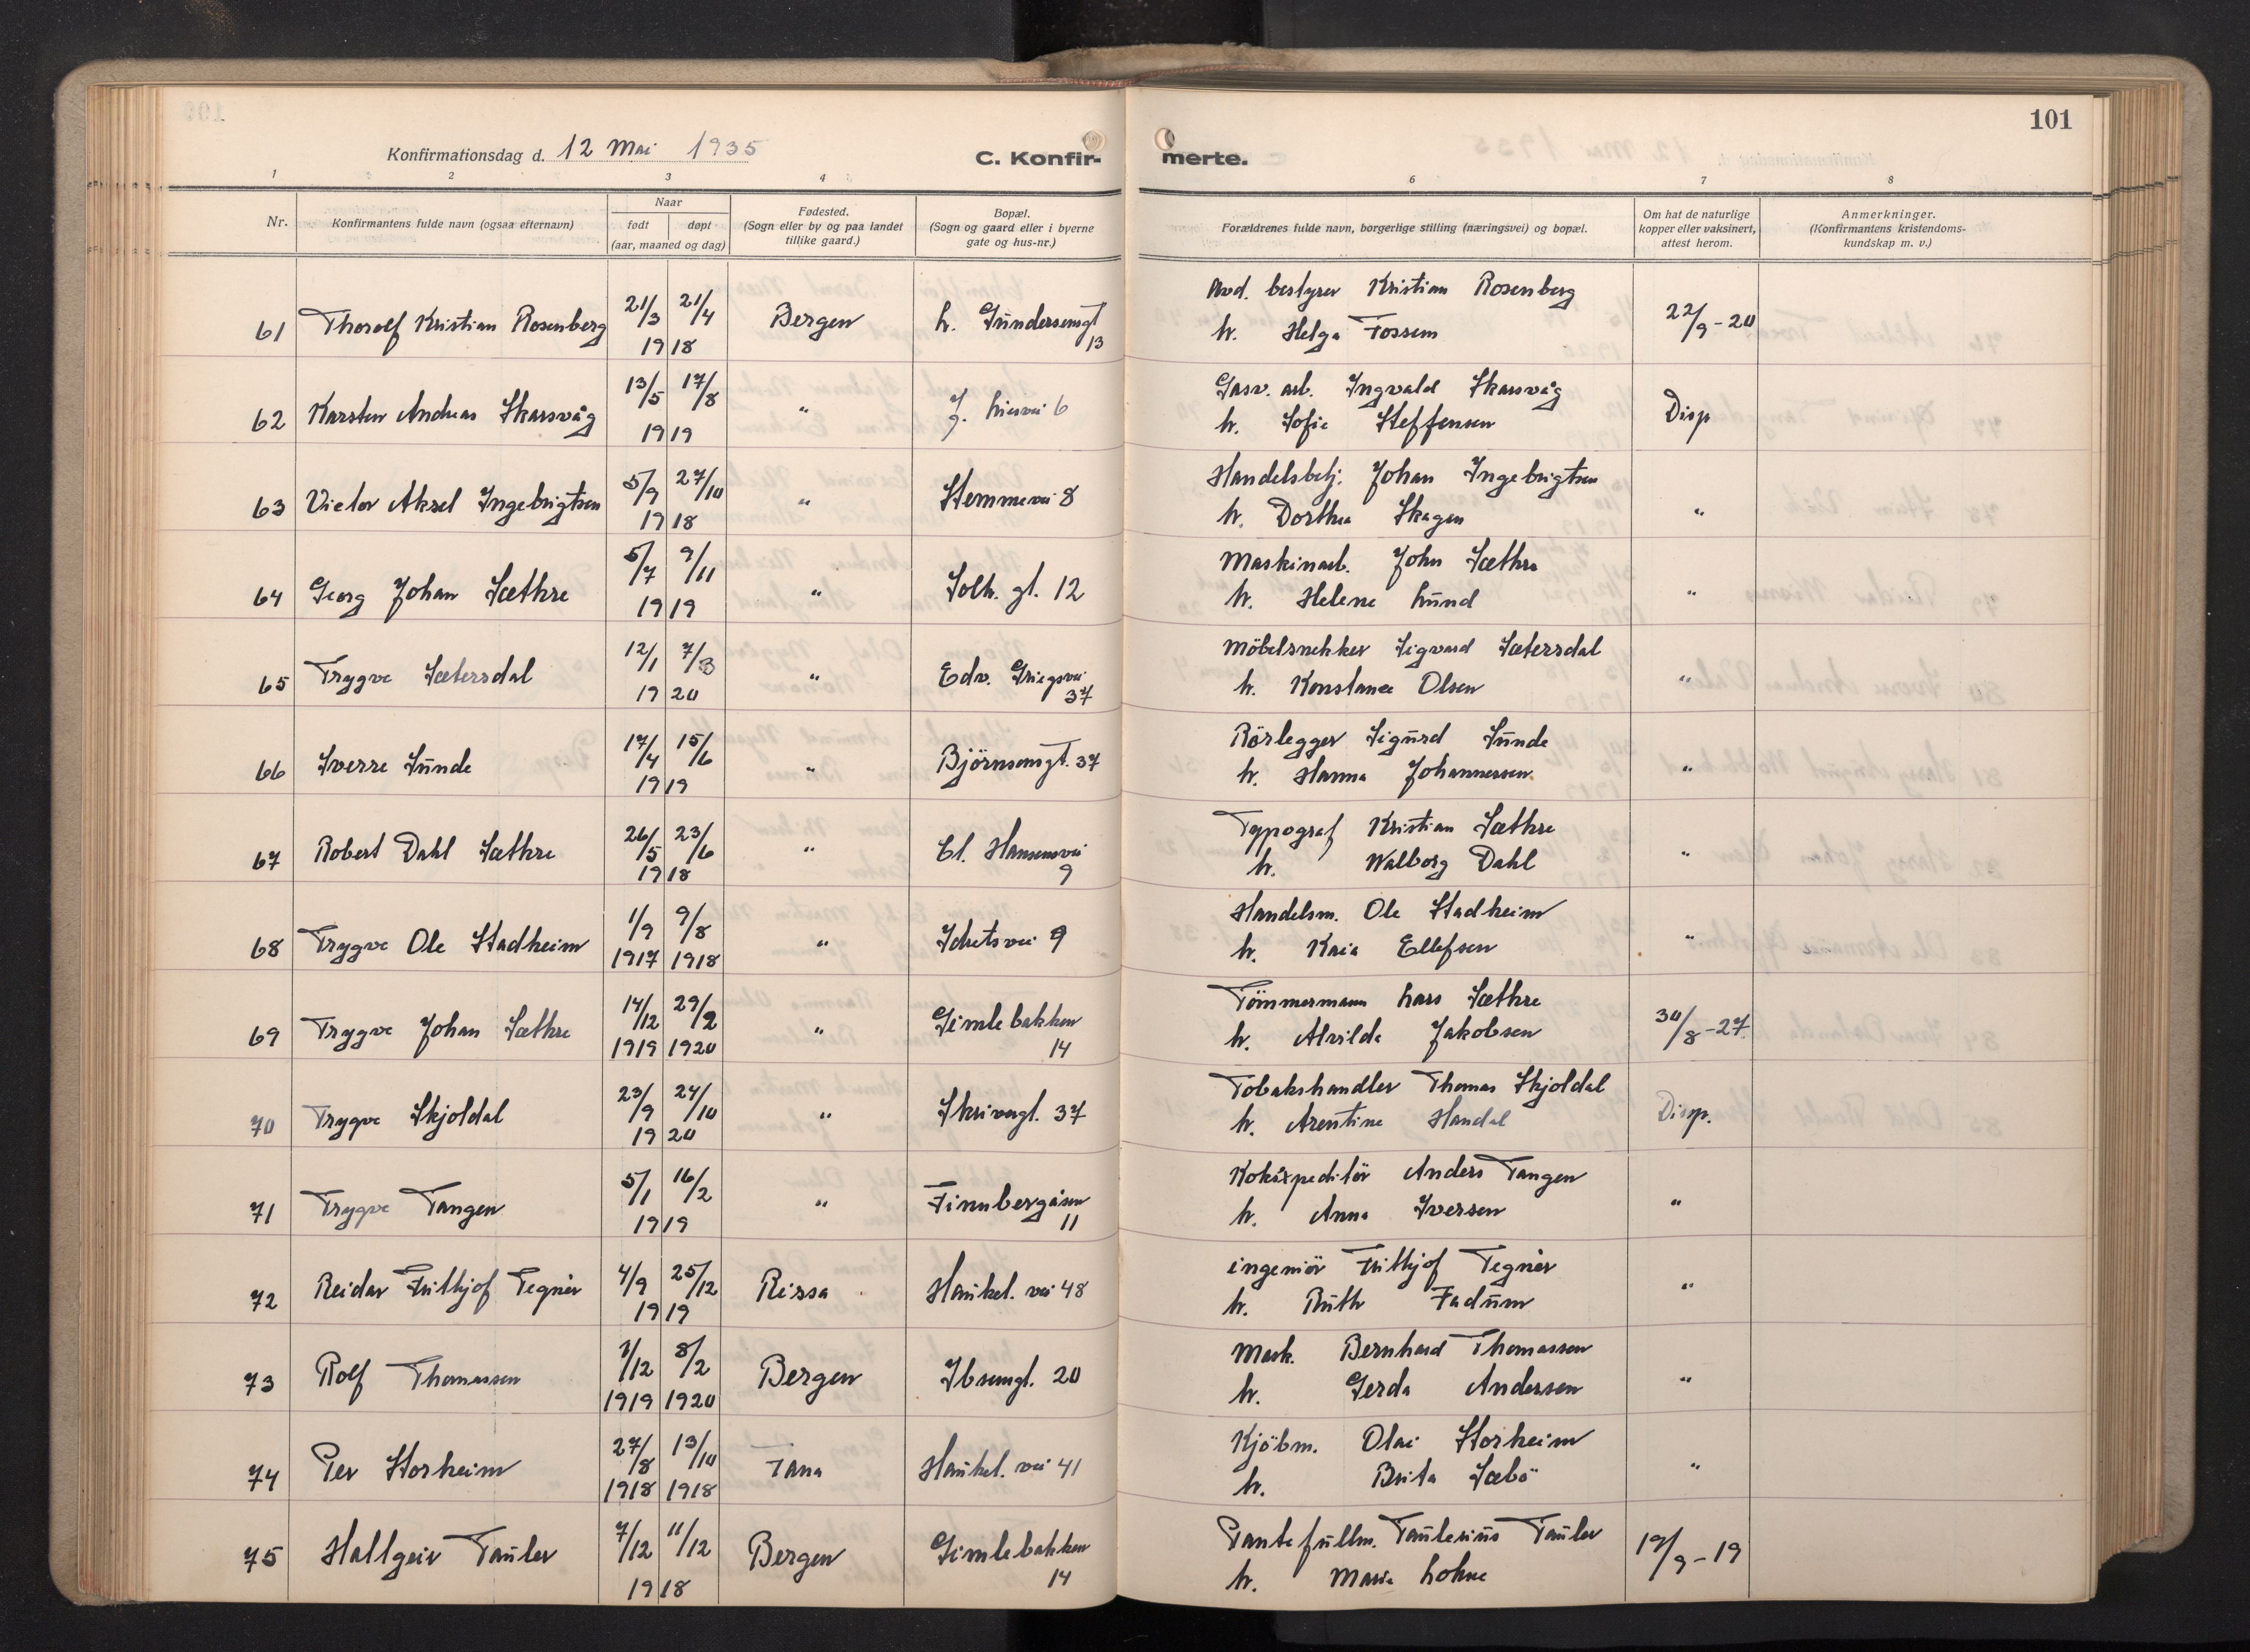 101
Konfirmationsdag d. 12 Mai 1935
C. Konfirmerte.
1 2 3 4 6 7 8
Nr.
Konfirmantens fulde navn (ogsaa efternavn)
Naar
født døpt
(aar, maaned og dag)
Fødested.
(Sogn eller by og paa landet
tillike gaard.)
Bopæl.
(Sogn og gaard eller i byerne
gate og hus-nr.)
Forældrenes fulde navn, borgerlige stilling (næringsvei) og bopæl.
Om hat de naturlige
kopper eller vaksinert,
attest herom.
Anmerkninger.
(Konfirmantens kristendoms-
kundskap m. v.)
61 Thorolf Kristian Rosenberg 21/3 21/4 1918 Bergen L. Gundersensgt 13
Avd. bestyrer Kristian Rosenberg
h. Helga Fossem 22/9-20
62 Karsten Andreas Skarsvåg 13/5 17/8 1919 " J. Liesvei 6
Gasv. arb. Ingvald Skarsvåg
h. Sofie Steffensen Disp
63 Victor Aksel Ingebrigtsen 5/9 27/10 1918 " Stemmevei 8
Handelsbetj. Johan Ingebrigtsen
h. Dorthea Skagen "
64 Georg Johan Sæthre 5/7 9/11 1919 " Solh. gt. 12
Maskinarb. John Sæthre
h. Helene Lund "
65 Trygve Sætersdal 12/1 7/3 1920 " Edv. Griegsvei 37
Möbelsnekker Sigvard Sætersdal
h. Konstance Olsen "
66 Sverre Sunde 17/4 15/6 1919 " Björnsonsgt. 37
Rörlegger Sigurd Sunde
h. Hanna Johannessen "
67 Robert Dahl Sæthre 26/5 23/6 1918 " Cl. Hansensvei 9
Typograf Kristian Sæthre
h. Walborg Dahl "
68 Trygve Ole Stadheim 1/9 9/8 1917 1918 " Idretsvei 9
Handelsm. Ole Stadheim
h. Kaia Ellefsen "
69 Trygve Johan Sæthre 14/12 29/2 1919 1920 " Gimlebakken 14
Tömmermann Lars Sæthre
h. Alvilde Jakobsen 30/8-27
70 Trygve Skjoldal 23/9 24/10 1920 " Skrivergt. 37
Tobakshandler Thomas Skjoldal
h. Arentine Handal Disp.
71 Trygve Tangen 5/1 16/2 1919 " Finnbergåsen 11
Anders Tangen
h. Anna Iversen "
72 Reidar Frithjof Tegnér 4/9 25/12 1919 Rissa Haukel. vei 48
ingeniör Frithjof Tegnér
h. Ruth Fadum "
73 Rolf Thomassen 1/12 8/2 1919 1920 Bergen Ibsensgt. 20
Mask. Bernhard Thomassen
h. Gerda Andersen "
74 Per Storheim 27/8 13/10 1918 1918 Fana Haukel. vei 41
Kjöbm. Olai Storheim
h. Brita Sæbö "
75 Hallgeir Tauler 7/12 11/12 1918 Bergen Gimlebakken 14
Pantefullm. Taulerius Tauler
h. Marie Lohne 19/9-19